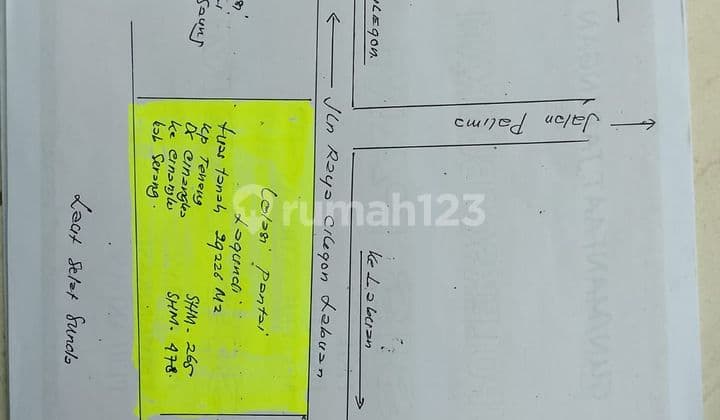 CILEGON
Jln Raya Cilegon Labuan
Jalan Palima
ke Labuan
Lokasi pantai
Lagundi
Luas tanah 29226 M2
kp Teneng
DS Cinangka
kec Cinangka
kab Serang.
SHM - 265
SHM - 478.
Laut Selat Sunda
rumah123